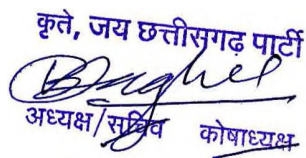 कृते, जय छत्तीसगढ़ पार्टी
अध्यक्ष/सचिव कोषाध्यक्ष